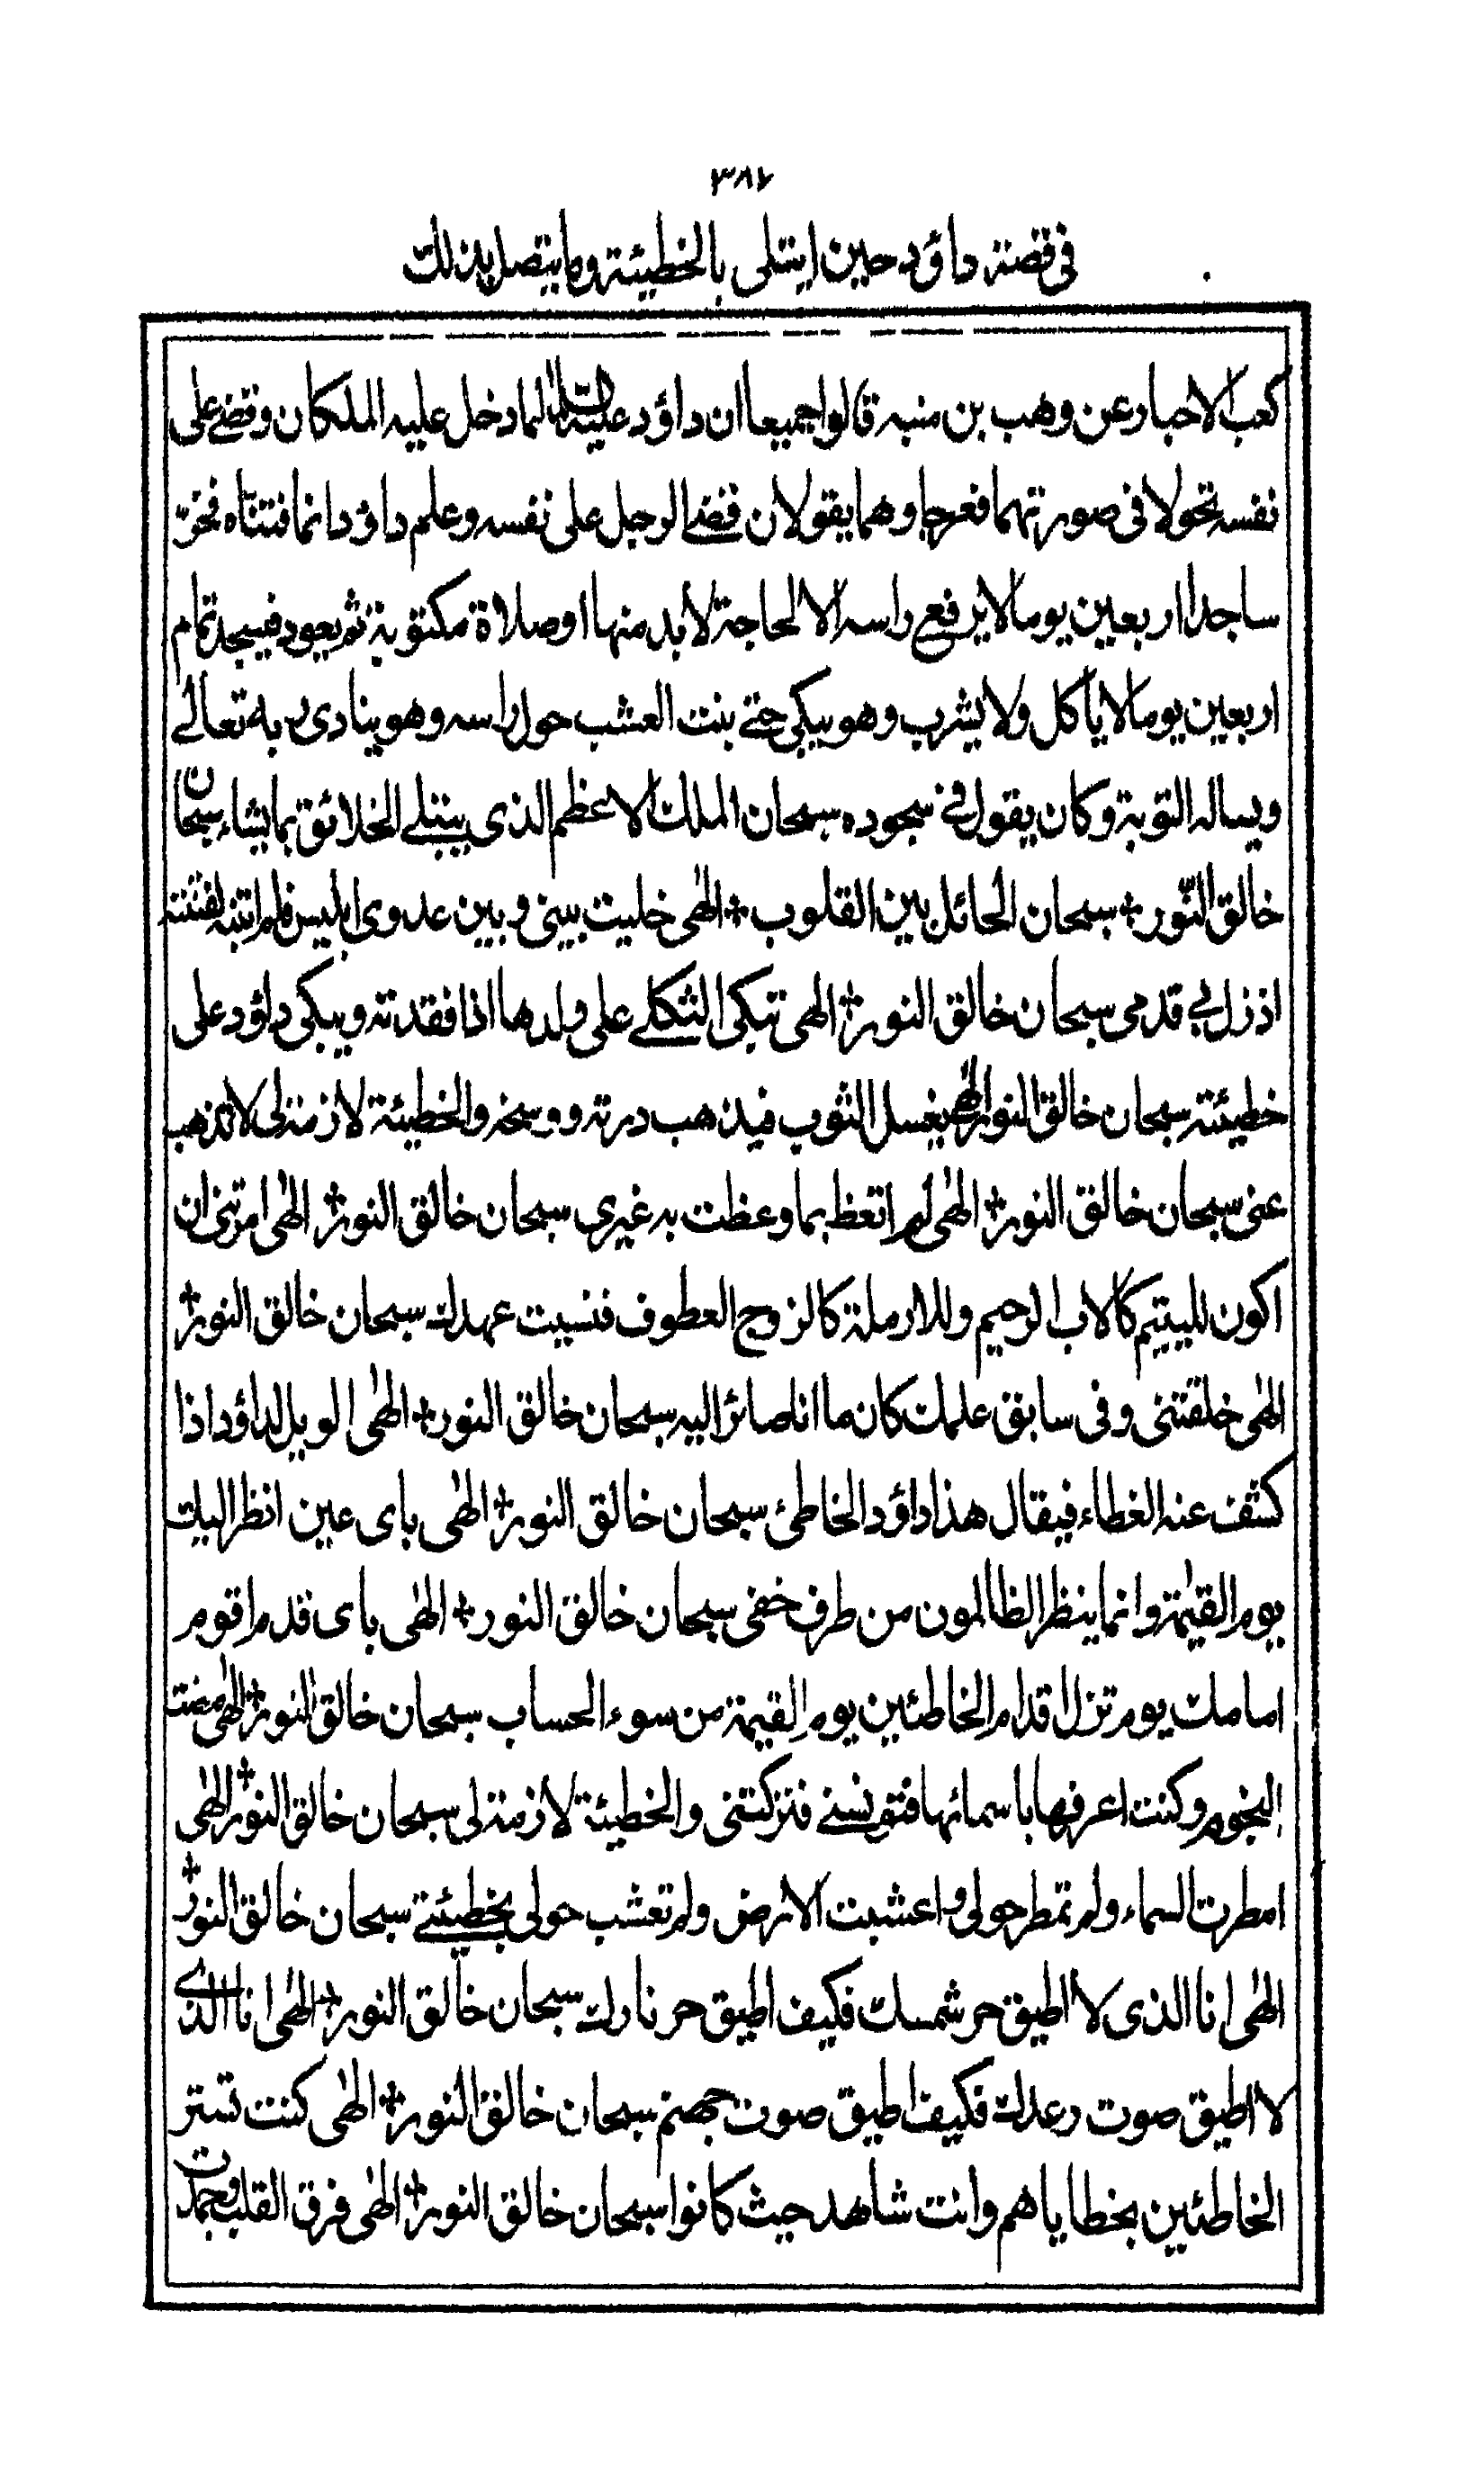 ٣٨٧
فى قصة داؤد حين ابتلى بالخطيئة وما يتصل بذلك
كعب الاحبار عن وهب بن منبه قالوا جميعا ان داؤد عليه السلام لما دخل عليه الملكان وقضے على
نفسه تحولا فى صورتهما فعرجا وهما يقولان قضے الرجل على نفسه وعلم داؤد انما فتناه فخرّ
ساجدا اربعين يوما لا يرفع راسه الا لحاجة لابد منها او صلاة مكتوبة ثم يعود فيسجد تمام
اربعين يوما لا ياكل ولا يشرب وهو يبكى حتے نبت العشب حول راسه وهو ينادى ربه تعالے
ويساله التوبة وكان يقول فے سجوده سبحان الملك الاعظم الذى يبتلے الخلائق بما يشاء سبحان
خالق النّور ٭ سبحان الحائل بين القلوب ٭ الهٰى خليت بينى وبين عدوى ابليس فلم انتبه لفتنته
اذ زل بے قدمى سبحان خالق النور ٭ الهى تبكى الثكلے على ولدها اذا فقدته ويبكى داؤد على
خطيئته سبحان خالق النور ٭ الهٰى يغسل الثوب فيذهب درنه ووسخه والخطيئة لازمة لى لا تذهب
عنى سبحان خالق النور ٭ الهٰى لم اتعظ بما وعظت به غيرى سبحان خالق النور ٭ الهٰى امرتنى ان
اكون لليتيم كالاب الرحيم وللارملة كالزوج العطوف فنسيت عهدك سبحان خالق النور ٭
الهٰى خلقتنى وفى سابق علمك كان ما انا صائر اليه سبحان خالق النور ٭ الهٰى الويل لداؤد اذا
كشف عنه الغطاء فيقال هذا داؤد الخاطئ سبحان خالق النور ٭ الهٰى باى عين انظر اليك
يوم القيٰمة وانما ينظر الظالمون من طرف خفى سبحان خالق النور ٭ الهٰى باى قدم اقوم
امامك يوم تزل اقدام الخاطئين يوم القيمة من سوء الحساب سبحان خالق النور ٭ الهٰى مضت
النجوم وكنت اعرفها باسمائها فتؤنسنے فتركتنى والخطيئة لازمة لى سبحان خالق النور ٭ الهٰى
امطرت السماء ولم تمطر حولى واعشبت الارض ولم تعشب حولى بخطيئتے سبحان خالق النور ٭
الهٰى انا الذى لا اطيق حر شمسك فكيف اطيق حر نارك سبحان خالق النور ٭ الهٰى انا الذے
لا اطيق صوت رعدك فكيف اطيق صوت جهنم سبحان خالق النور ٭ الهٰى كنت تستر
الخاطئين بخطاياهم وانت شاهد حيث كانوا سبحان خالق النور ٭ الهٰى فرق القلب وجمدت